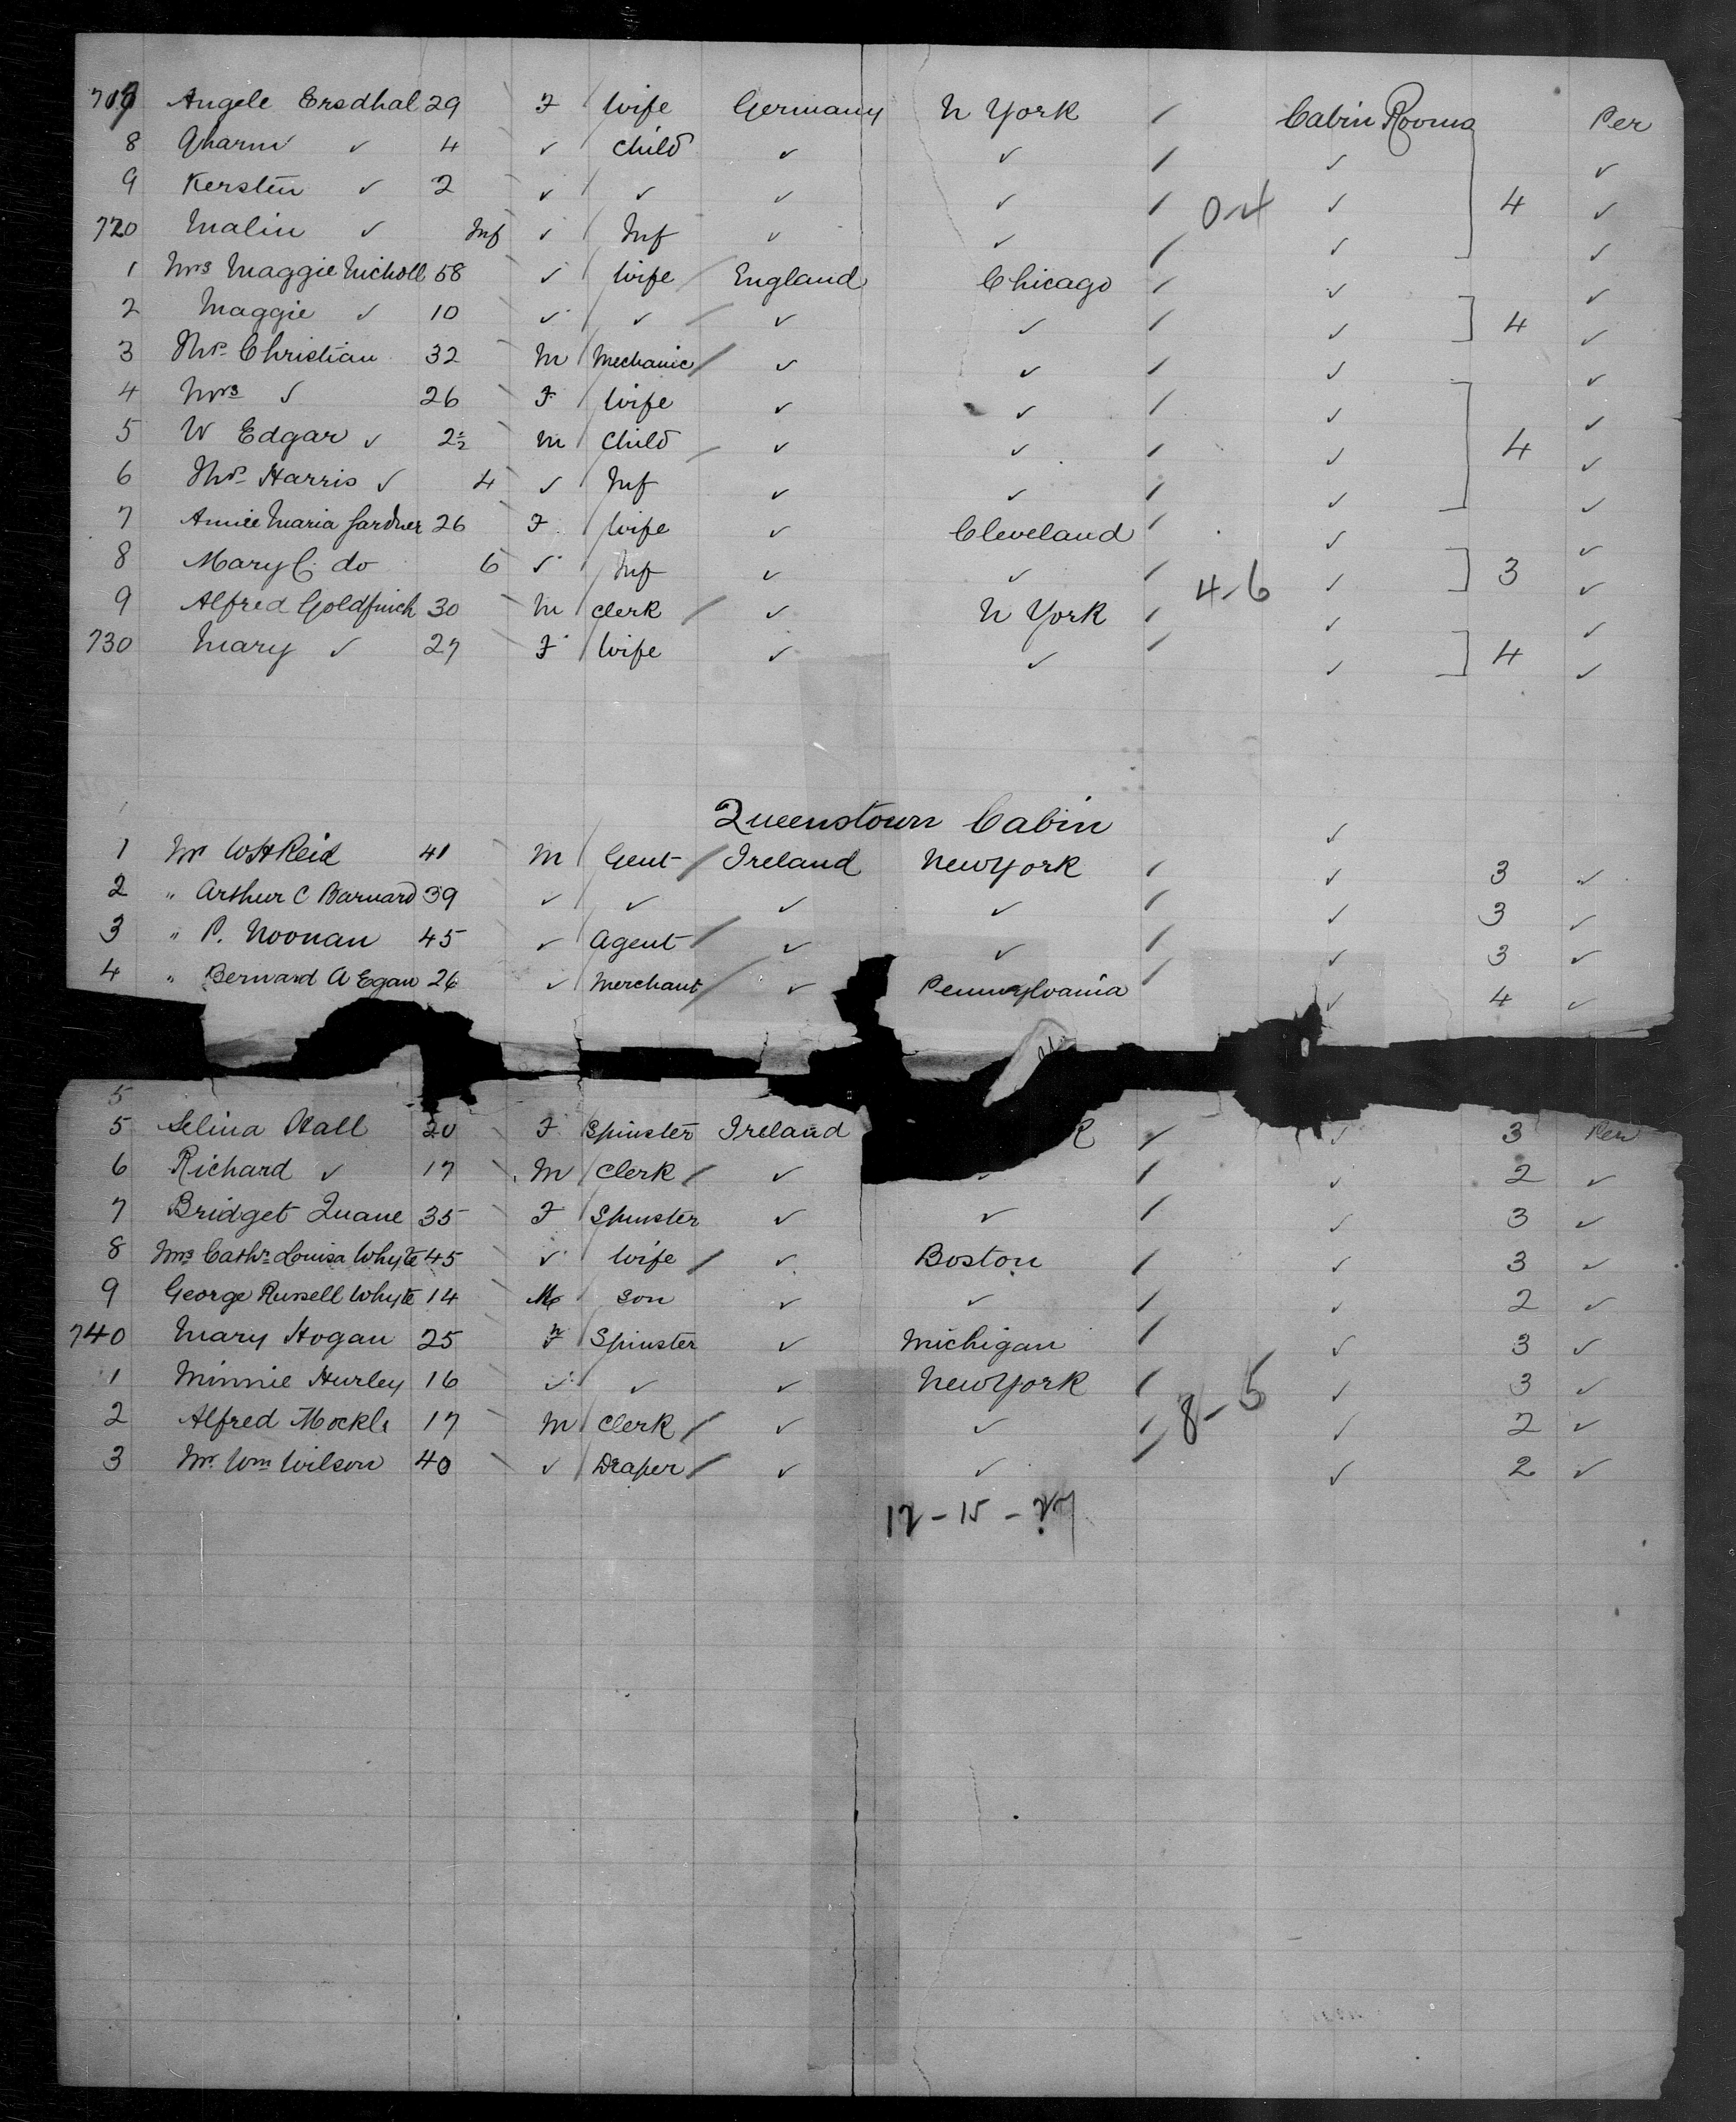 Angele Ersdhal 29 F Wife Germany N York / Cabin Rooms Per
8 ✓ 4 ✓ Child ✓ ✓ / ✓ ✓
9 Kersten ✓ 2 ✓ ✓ ✓ ✓ / 0-4 ✓ 4 ✓
720 Malin ✓ Inf ✓ Inf ✓ ✓ / ✓ ✓
1 Mrs Maggie Nicholl 58 ✓ Wife England Chicago / ✓ ✓
2 Maggie ✓ 10 ✓ ✓ ✓ ✓ / ✓ 4 ✓
3 Christian 32 M Mechanic ✓ ✓ / ✓ ✓
4 Mrs ✓ 26 F Wife ✓ ✓ / ✓ ✓
5 W Edgar ✓ M Child ✓ ✓ / ✓ 4 ✓
6 Harris ✓ 4 ✓ Inf ✓ ✓ / ✓ ✓
7 Annie Maria Gardner 26 F Wife ✓ Cleveland / ✓ ✓
8 Mary C. do 6 ✓ Inf ✓ ✓ / 4-6 ✓ 3 ✓
9 Alfred Goldfinch 30 M Clerk ✓ N York / ✓ ✓
730 Mary ✓ 27 F Wife ✓ ✓ / ✓ 4 ✓
Queenstown Cabin ✓
1 Mr W H Reid 41 M Gent Ireland New York / ✓ 3 ✓
2 " Arthur C Barnard 39 ✓ ✓ ✓ ✓ / ✓ 3 ✓
3 " P. Noonan 45 ✓ Agent ✓ ✓ / ✓ 3 ✓
4 " Bernard A Egan 26 ✓ Merchant ✓ Pennsylvania / ✓ 4 ✓
5
5 Selina Hall 20 F Spinster Ireland / ✓ 3 Per
6 Richard ✓ 17 M Clerk ✓ ✓ / ✓ 2 ✓
7 Bridget Quane 35 F Spinster ✓ ✓ / ✓ 3 ✓
8 Mrs Cathr Louisa Whyte 45 ✓ Wife ✓ Boston / ✓ 3 ✓
9 George Russell Whyte 14 M Son ✓ ✓ / ✓ 2 ✓
740 Mary Hogan 25 F Spinster ✓ Michigan / ✓ 3 ✓
1 Minnie Hurley 16 ✓ ✓ ✓ New York / ✓ 3 ✓
2 Alfred Mockle 17 M Clerk ✓ ✓ / 8-5 ✓ 2 ✓
3 Mr. Wm Wilson 40 ✓ Draper ✓ ✓ / ✓ 2 ✓
12-15-